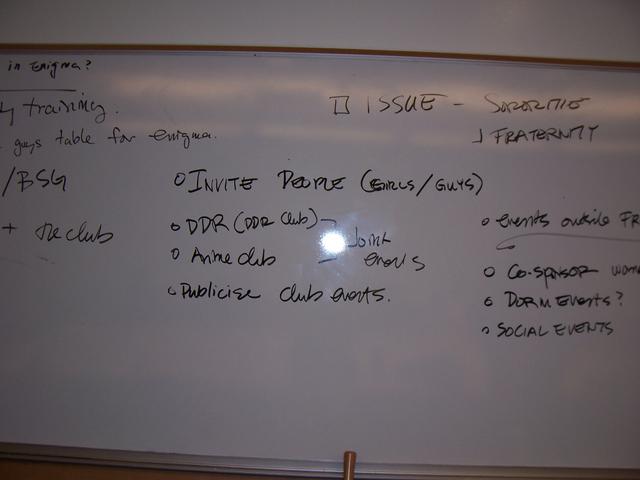 in enigma?
training.
guys table for enigma.
/BSG
+ the club
□ ISSUE - SORORITIE
FRATERNITY
o INVITE PEOPLE (GIRLS/GUYS)
o DDR (DDR Club)
o Anime club
Joint events
o Publicise club events.
o events outside FR
o Co-sponsor wom
o DORM EVENTS?
o SOCIAL EVENTS